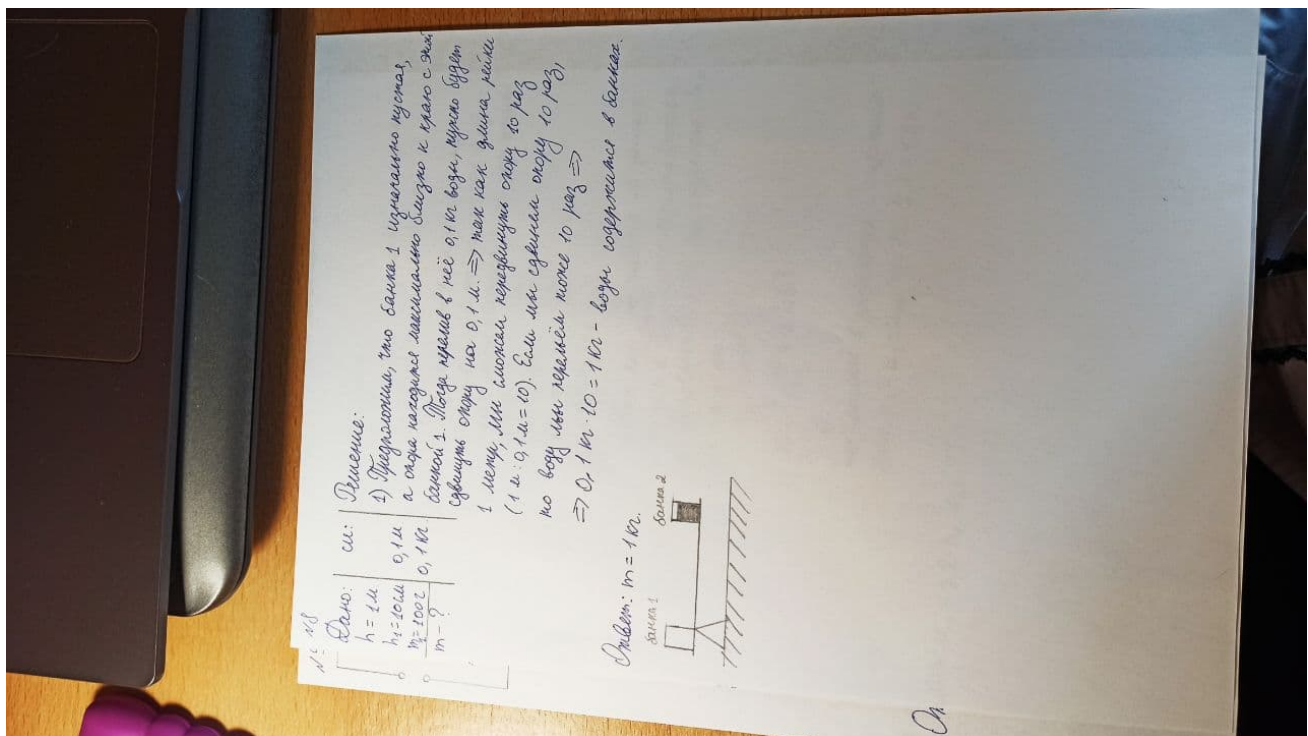 № 18
Дано:
h = 1м
h₁=10см
m₁=100г
m – ?
си:
0,1м
0,1 кг.
Решение:
1) Предположим, что банка 1 изначально пустая,
а опора находится максимально близко к краю с этой
банкой 1. Тогда перелив в неё 0,1 кг воды, нужно будет
сдвинуть опору на 0,1 м. => так как длина рейки
1 метр, мы сможем передвинуть опору 10 раз
(1 м : 0,1 м = 10). Если мы сдвинем опору 10 раз,
то воду мы перельём тоже 10 раз =>
=> 0,1 кг · 10 = 1 кг - воды содержится в банках.
Ответ: m = 1 кг.
банка 1
банка 2
От